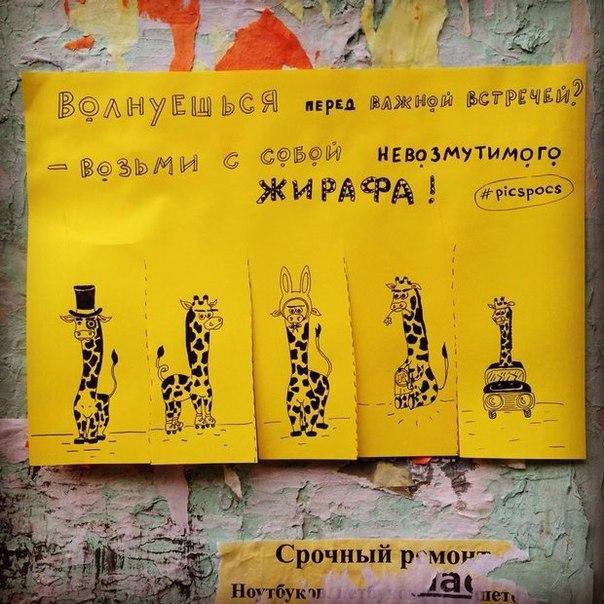 ВОЛНУЕШЬСЯ ПЕРЕД ВАЖНОЙ ВСТРЕЧЕЙ?
– ВОЗЬМИ С СОБОЙ НЕВОЗМУТИМОГО
ЖИРАФА!
#picspocs
Срочный ремонт